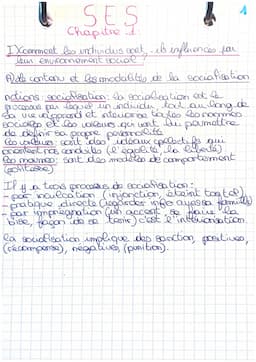 SES
1
Chapitre 1
I) Comment les individus sont-ils influencés par
leur environnement social?
A) le contenu et les modalités de la socialisation
notions: socialisation: la socialisation est le
processus par lequel un individu, tout au long de
sa vie apprend et les normes
sociales et les valeurs qui vont lui permettre
de définir sa propre personnalité
les valeurs: sont des idéaux collectifs qui
orientent nos conduites (l'égalité, la liberté)
les normes: sont des modèles de comportement
(politesse)
Il y a trois processus de socialisation:
- par inculcation (injonction, éteint ton tel)
- pratique directe (regarder infos avec sa famille)
- par imprégnation (un accent, se faire la
bise, façon de se tenir) c'est l'intériorisation.
la socialisation implique des sanction, positives,
(récompense), négatives, (punition).